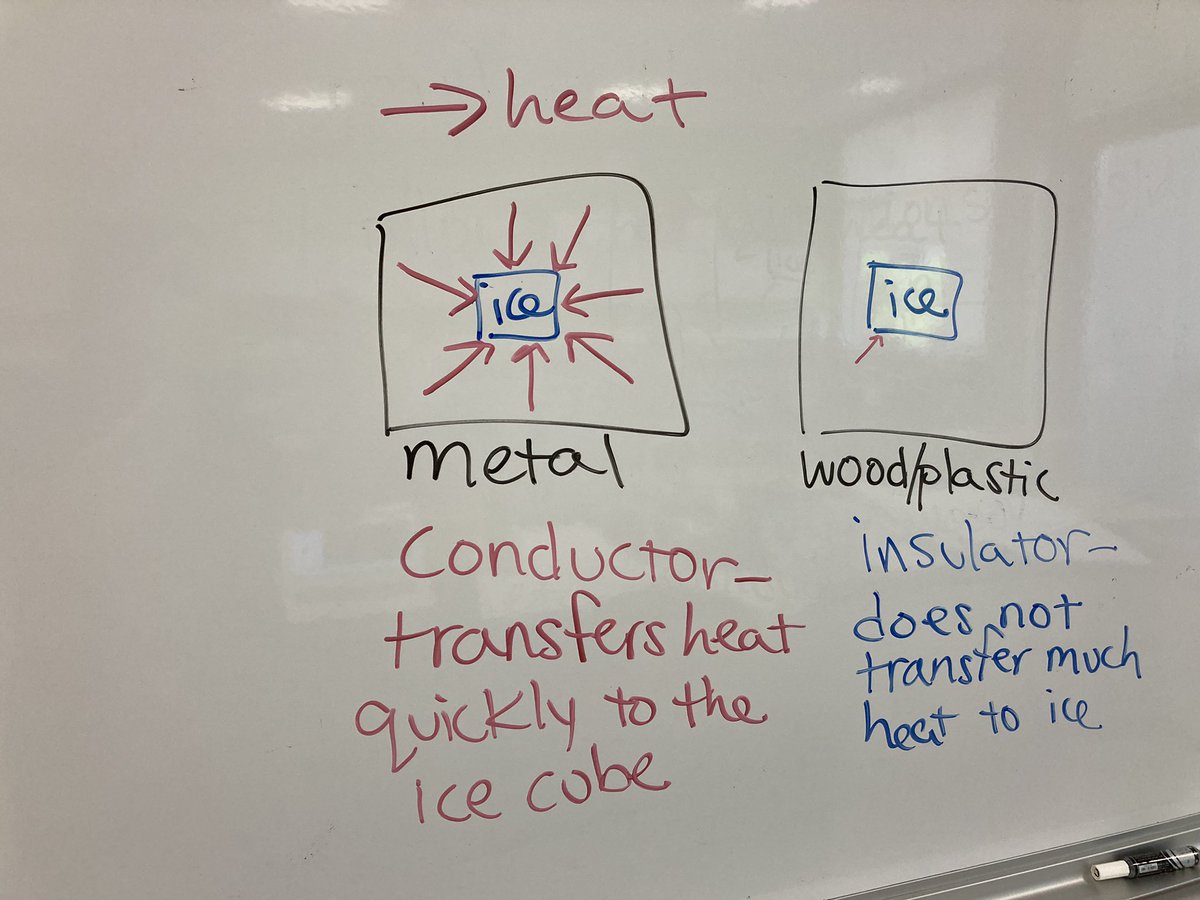 → heat
ice
metal
Conductor-
transfers heat
quickly to the
ice cube
ice
wood/plastic
insulator-
does not
transfer much
heat to ice